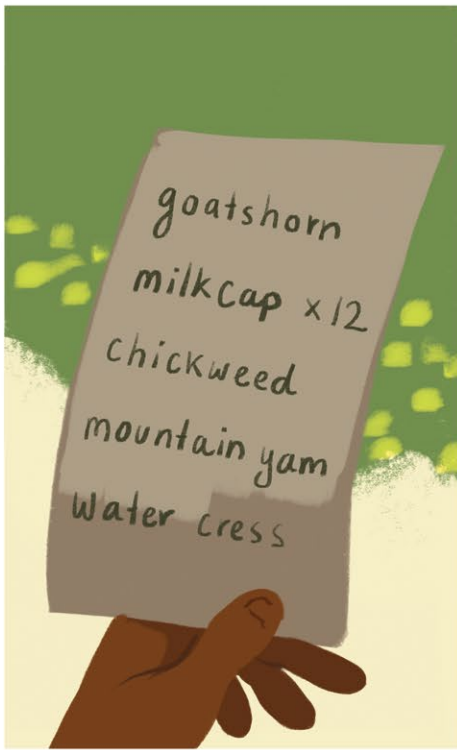 goatshorn
milkcap x12
chickweed
mountain yam
Water cress